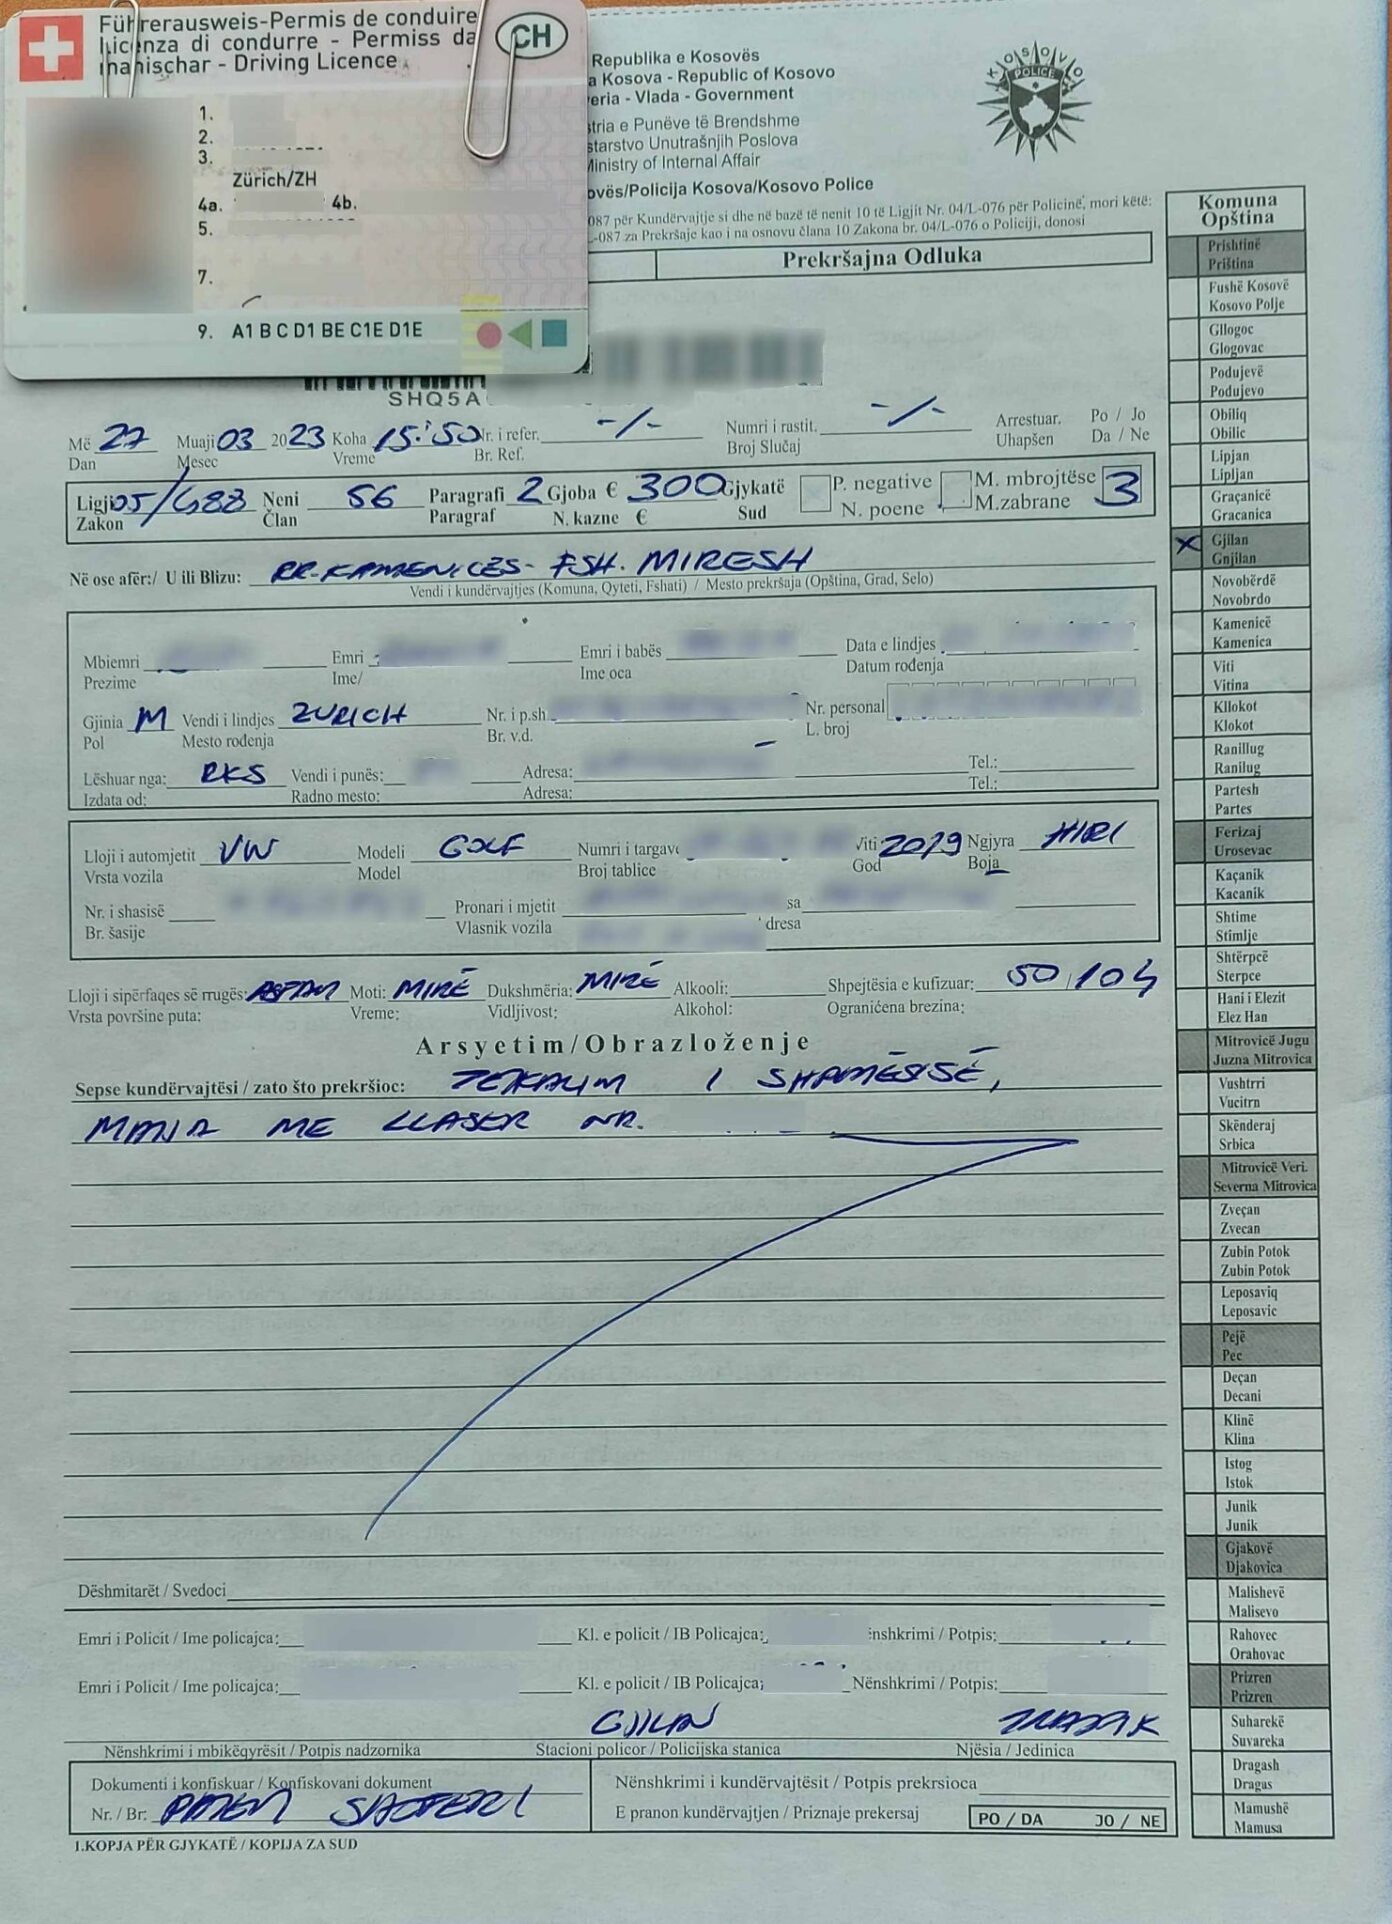 Führerausweis-Permis de conduire
Licenza di condurre - Permiss da
manischar - Driving Licence
CH
1.
2.
3.
Zürich/ZH
4a. 4b.
5.
7.
9. A1 B C D1 BE C1E D1E
Republika e Kosovës
a Kosova - Republic of Kosovo
veria - Vlada - Government
stria e Punëve të Brendshme
starstvo Unutrašnjih Poslova
Ministry of Internal Affair
ovës/Policija Kosova/Kosovo Police
KOSOVO
POLICE
087 për Kundërvajtje si dhe në bazë të nenit 10 të Ligjit Nr. 04/L-076 për Policinë, mori këtë:
-087 za Prekršaje kao i na osnovu člana 10 Zakona br. 04/L-076 o Policiji, donosi
Prekršajna Odluka
SHQ5A
Më 27 Muaji 03 2023 Koha 15:50 Nr. i refer. -/- Numri i rastit. -/- Arrestuar. Po / Jo
Dan Mesec Vreme Br. Ref. Broj Slučaj Uhapšen Da / Ne
Ligji 05/L-088 Neni 56 Paragrafi 2 Gjoba € 300 Gjykatë P. negative M. mbrojtëse 3
Zakon Član Paragraf N. kazne € Sud N. poene M.zabrane
Në ose afër:/ U ili Blizu: RR-KAMENICËS- FSH. MIRESH
Vendi i kundërvajtjes (Komuna, Qyteti, Fshati) / Mesto prekršaja (Opština, Grad, Selo)
Mbiemri Emri Emri i babës Data e lindjes
Prezime Ime/ Ime oca Datum rođenja
Gjinia M Vendi i lindjes ZURICH Nr. i p.sh Nr. personal
Pol Mesto rođenja Br. v.d. L. broj
Lëshuar nga: RKS Vendi i punës: Adresa: Tel.:
Izdata od: Radno mesto: Adresa: Tel.:
Lloji i automjetit VW Modeli GOLF Numri i targave Viti 2019 Ngjyra HIRI
Vrsta vozila Model Broj tablice God Boja
Nr. i shasisë Pronari i mjetit sa
Br. šasije Vlasnik vozila dresa
Lloji i sipërfaqes së rrugës: ASFALT Moti: MIRË Dukshmëria: MIRË Alkooli: Shpejtësia e kufizuar: 50/104
Vrsta površine puta: Vreme: Vidljivost: Alkohol: Ograničena brezina:
Arsyetim/Obrazloženje
Sepse kundërvajtësi / zato što prekršioc: TEJKALIM I SHPEJTËSISË,
MATJA ME LLASER NR.
Dëshmitarët / Svedoci
Emri i Policit / Ime policajca: Kl. e policit / IB Policajca: ënshkrimi / Potpis:
Emri i Policit / Ime policajca: Kl. e policit / IB Policajca: Nënshkrimi / Potpis:
GJILAN TRAFIK
Nënshkrimi i mbikëqyrësit / Potpis nadzornika Stacioni policor / Policijska stanica Njësia / Jedinica
Dokumenti i konfiskuar / Konfiskovani dokument
Nr. / Br: PATEN SHOFERI
Nënshkrimi i kundërvajtësit / Potpis prekrsioca
E pranon kundërvajtjen / Priznaje prekersaj PO / DA JO / NE
1.KOPJA PËR GJYKATË / KOPIJA ZA SUD
Komuna
Opština
Prishtinë
Priština
Fushë Kosovë
Kosovo Polje
Gllogoc
Glogovac
Podujevë
Podujevo
Obiliq
Obilic
Lipjan
Lipljan
Graçanicë
Gracanica
X Gjilan
Gnjilan
Novobërdë
Novobrdo
Kamenicë
Kamenica
Viti
Vitina
Kllokot
Klokot
Ranillug
Ranilug
Partesh
Partes
Ferizaj
Urosevac
Kaçanik
Kacanik
Shtime
Stimlje
Shtërpcë
Sterpce
Hani i Elezit
Elez Han
Mitrovicë Jugu
Juzna Mitrovica
Vushtrri
Vucitrn
Skënderaj
Srbica
Mitrovicë Veri.
Severna Mitrovica
Zveçan
Zvecan
Zubin Potok
Zubin Potok
Leposaviq
Leposavic
Pejë
Pec
Deçan
Decani
Klinë
Klina
Istog
Istok
Junik
Junik
Gjakovë
Djakovica
Malishevë
Malisevo
Rahovec
Orahovac
Prizren
Prizren
Suharekë
Suvareka
Dragash
Dragas
Mamushë
Mamusa